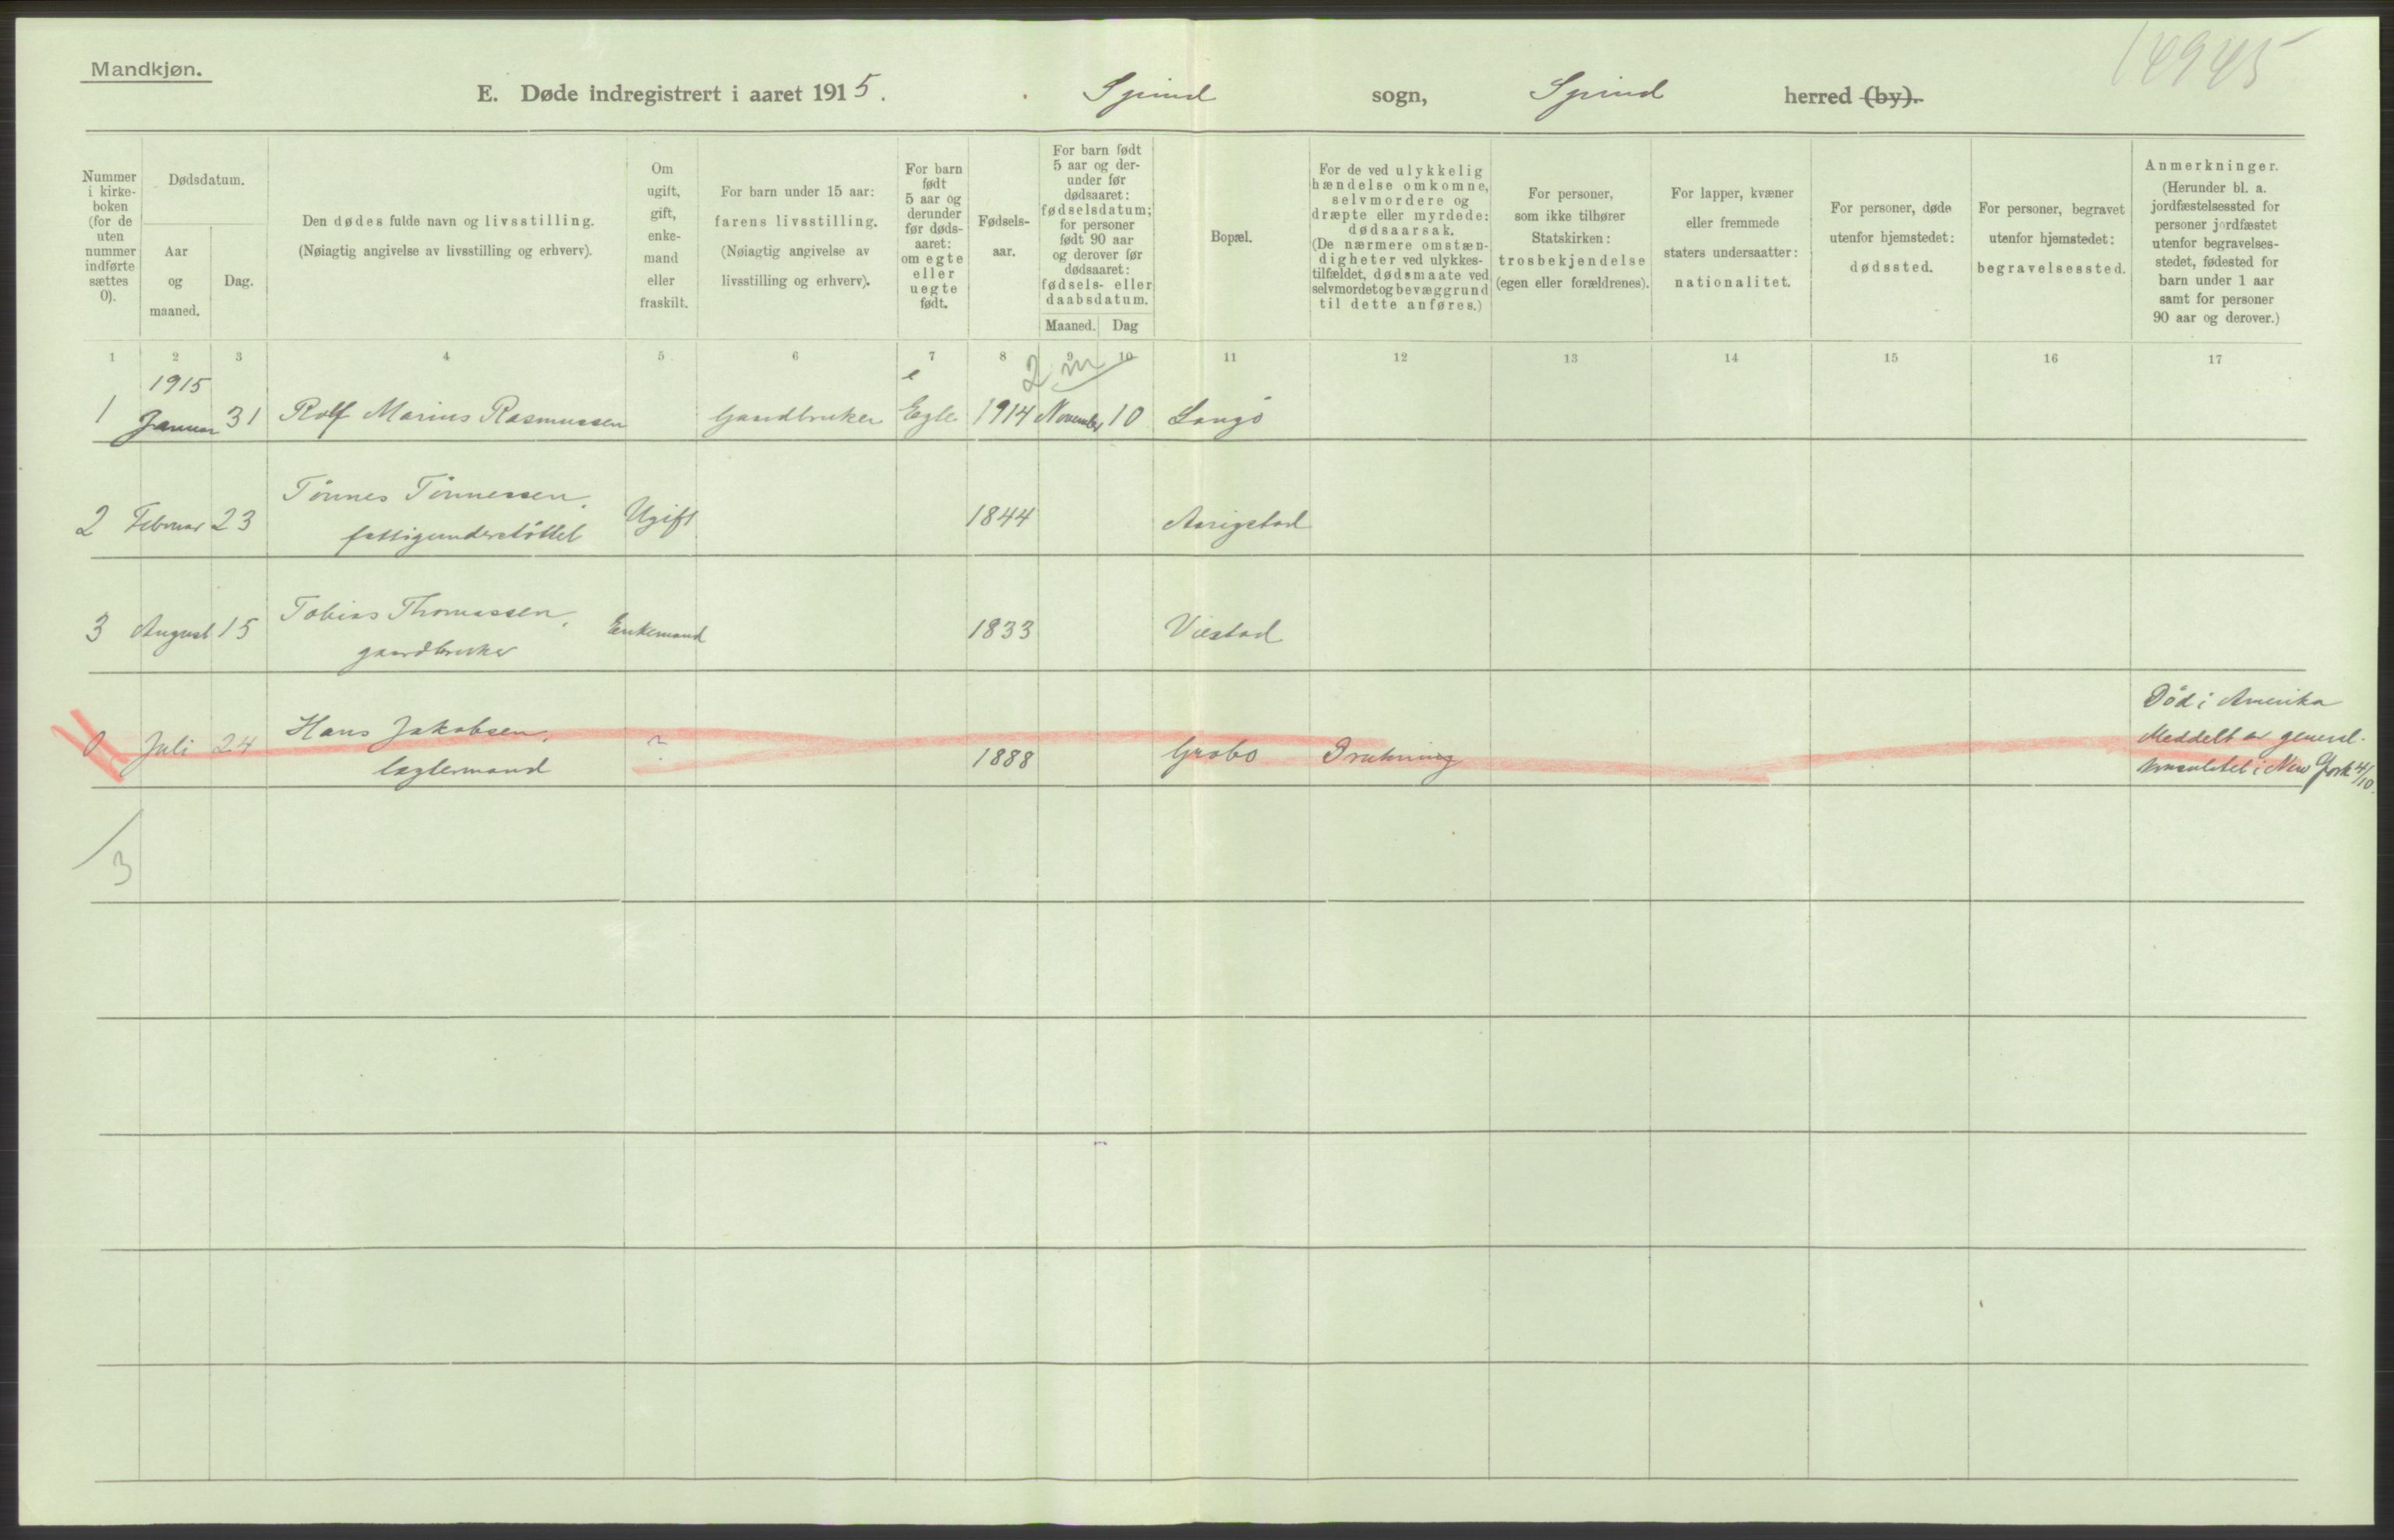 Mandkjøn.
14945
E. Døde indregistrert i aaret 1915. Spind sogn, Spind herred (by).
Nummer i kirkeboken (for de uten nummer indførte sættes 0).
Dødsdatum.
Aar og maaned.
Dag.
Den dødes fulde navn og livsstilling.
(Nøiagtig angivelse av livsstilling og erhverv).
Om ugift, gift, enkemand eller fraskilt.
For barn under 15 aar: farens livsstilling.
(Nøiagtig angivelse av livsstilling og erhverv).
For barn født 5 aar og derunder før dødsaaret: om egte eller uegte født.
Fødselsaar.
For barn født 5 aar og derunder før dødsaaret: fødselsdatum; for personer født 90 aar og derover før dødsaaret: fødsels- eller daabsdatum.
Maaned. Dag
Bopæl.
For de ved ulykkelig hændelse omkomne, selvmordere og dræpte eller myrdede: dødsaarsak.
(De nærmere omstændigheter ved ulykkestilfældet, dødsmaate ved selvmordet og bevæggrund til dette anføres.)
For personer, som ikke tilhører Statskirken: trosbekjendelse (egen eller forældrenes).
For lapper, kvæner eller fremmede staters undersaatter: nationalitet.
For personer, døde utenfor hjemstedet: dødssted.
For personer, begravet utenfor hjemstedet: begravelsessted.
Anmerkninger.
(Herunder bl. a. jordfæstelsessted for personer jordfæstet utenfor begravelsesstedet, fødested for barn under 1 aar samt for personer 90 aar og derover.)
1 2 3 4 5 6 7 8 9 10 11 12 13 14 15 16 17
1915 e 2 m
1 Januar 31 Rolf Marius Rasmussen Gaardbruker Egte 1914 November 10 Langö
2 Februar 23 Tönnes Tönnessen, fattigunderstöttet Ugift 1844 Aarigstad
3 August 15 Tobias Thomassen, gaardbruker Enkemand 1833 Viestad
0 Juli 24 Hans Jakobsen, ? 1888 Drukning
Död i Amerika
Meddelt av general-
konsulatet i New York 4/10.
3